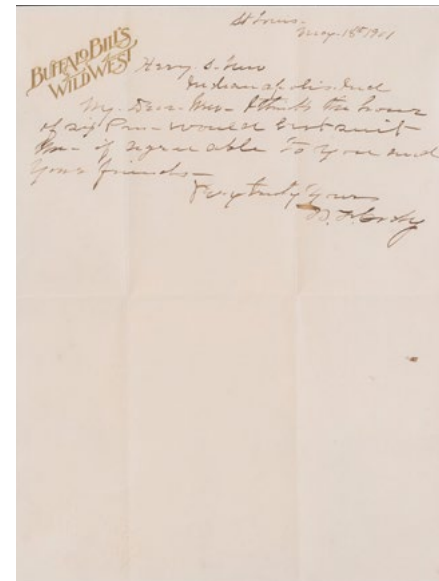 St Louis.
May. 18th 1901
BUFFALO BILL'S
WILD WEST
Harry S. New
Indianapolis Ind
My. Dear. New— I think the hour
of six P.m— would best suit
me— if agreeable to you and
your friends—
Very truly yours
W. F. Cody